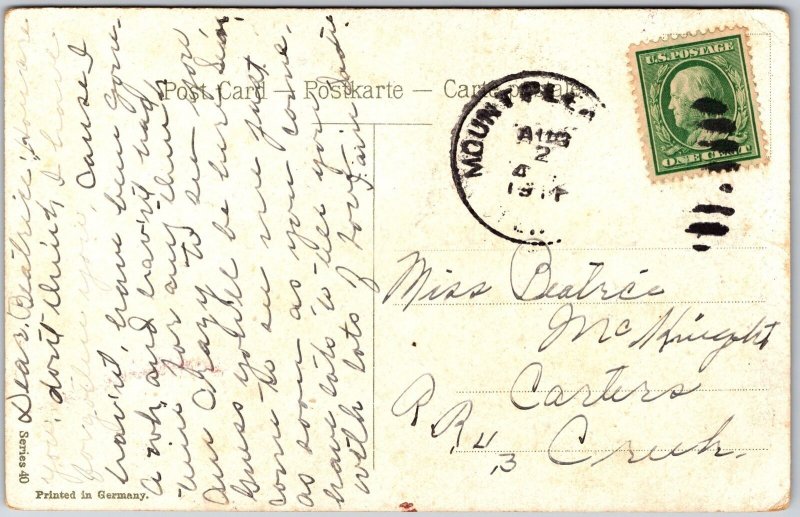 Post Card — Postkarte — Carte postale
U.S. POSTAGE
ONE CENT
MOUNT PLEA
AUG
2
A
191
Dear Beatrice,
you don't think I have
forgotten you, cause I
havn't, have been gone
a wk, and havn't had
time for any thing,
am crazy to see you
guess you'll be here dear
come to see me just
as soon as you come,
have lots to tell you
with lots of love,
Miss Beatrice
McKnight
Carters
Creek.
R.R. # 3
Series 40
Printed in Germany.